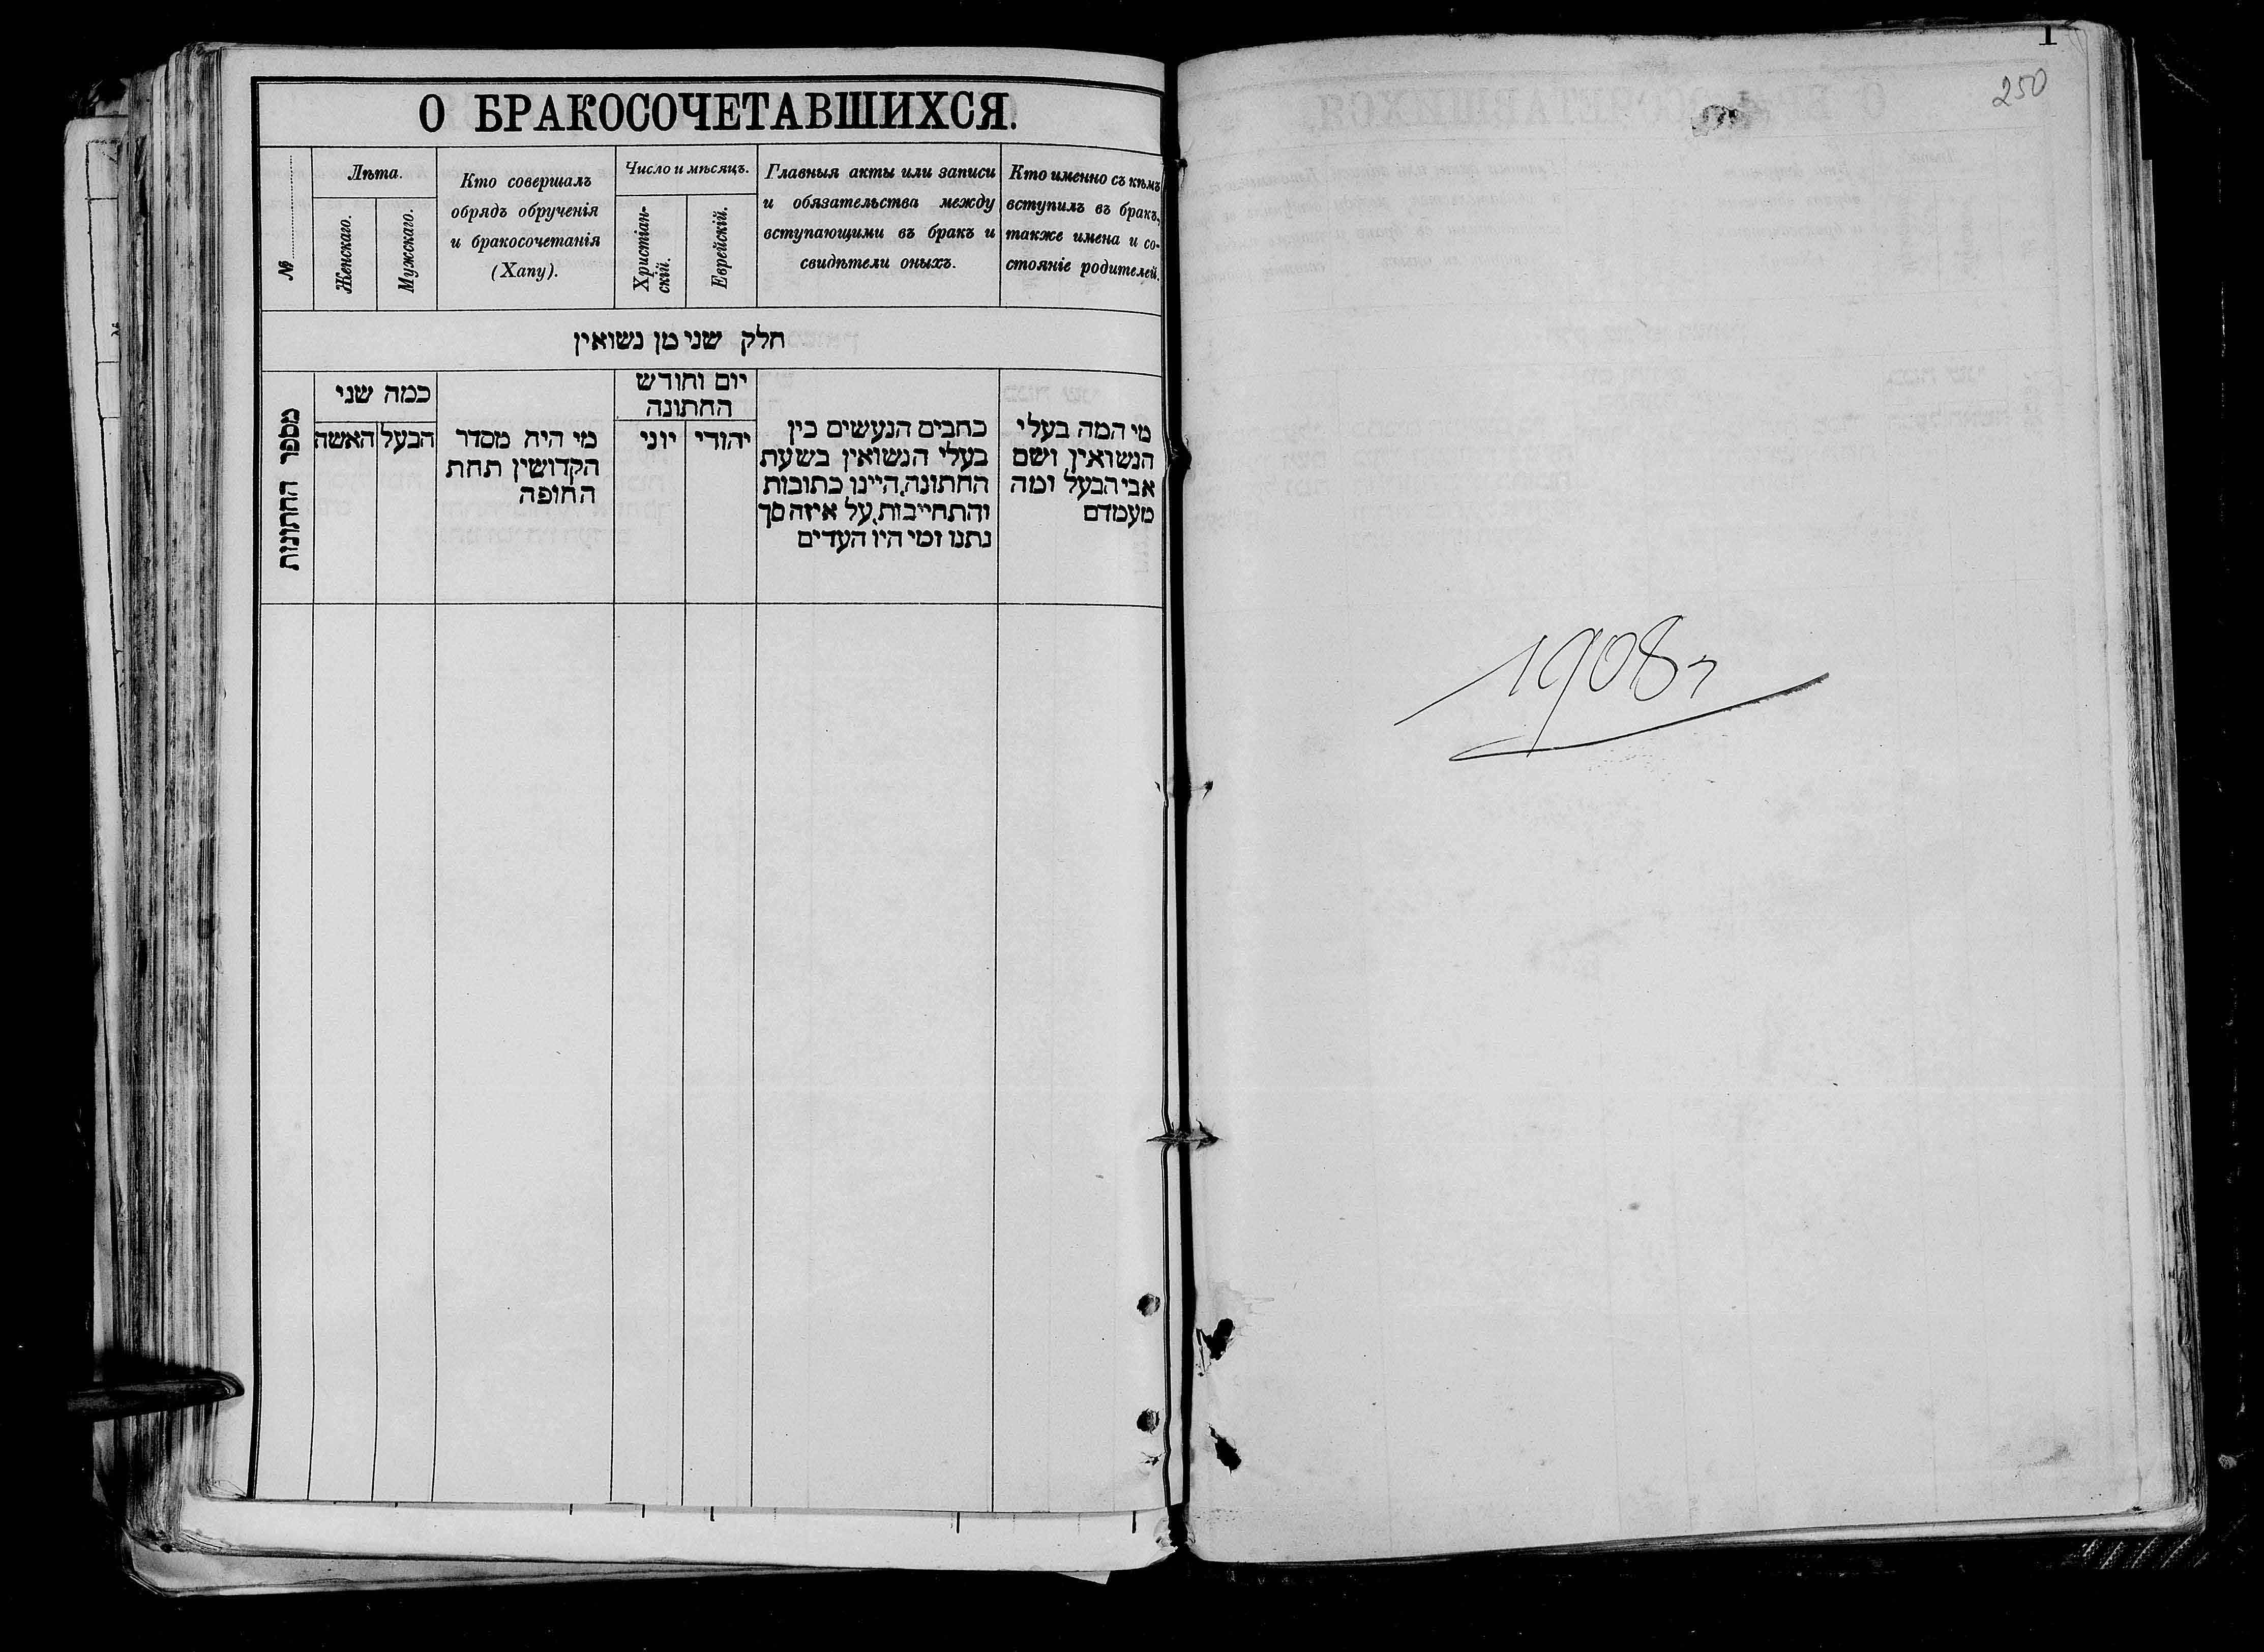 О БРАКОСОЧЕТАВШИХСЯ.
№
Лѣта.
Женскаго.
Мужскаго.
Кто совершалъ
обрядъ обрученія
и бракосочетанія
(Хапу).
Число и мѣсяцъ.
Христіан-
скій.
Еврейскій.
Главныя акты или записи
и обязательства между
вступающими въ бракъ и
свидѣтели оныхъ.
Кто именно съ кѣмъ
вступилъ въ бракъ,
также имена и со-
стояніе родителей.
חלק שני מן נשואין
מספר החתונות
כמה שני
האשה
הבעל
מי היה מסדר
הקדושין תחת
החופה
יום וחודש
החתונה
יוני
יהודי
כתבים הנעשים בין
בעלי הנשואין בשעת
החתונה, היינו כתובות
והתחייבות, על איזה סך
נתנו ומי היו העדים
מי המה בעלי
הנשואין ושם
אבי הבעל ומה
מעמדם
1
250
1908 г